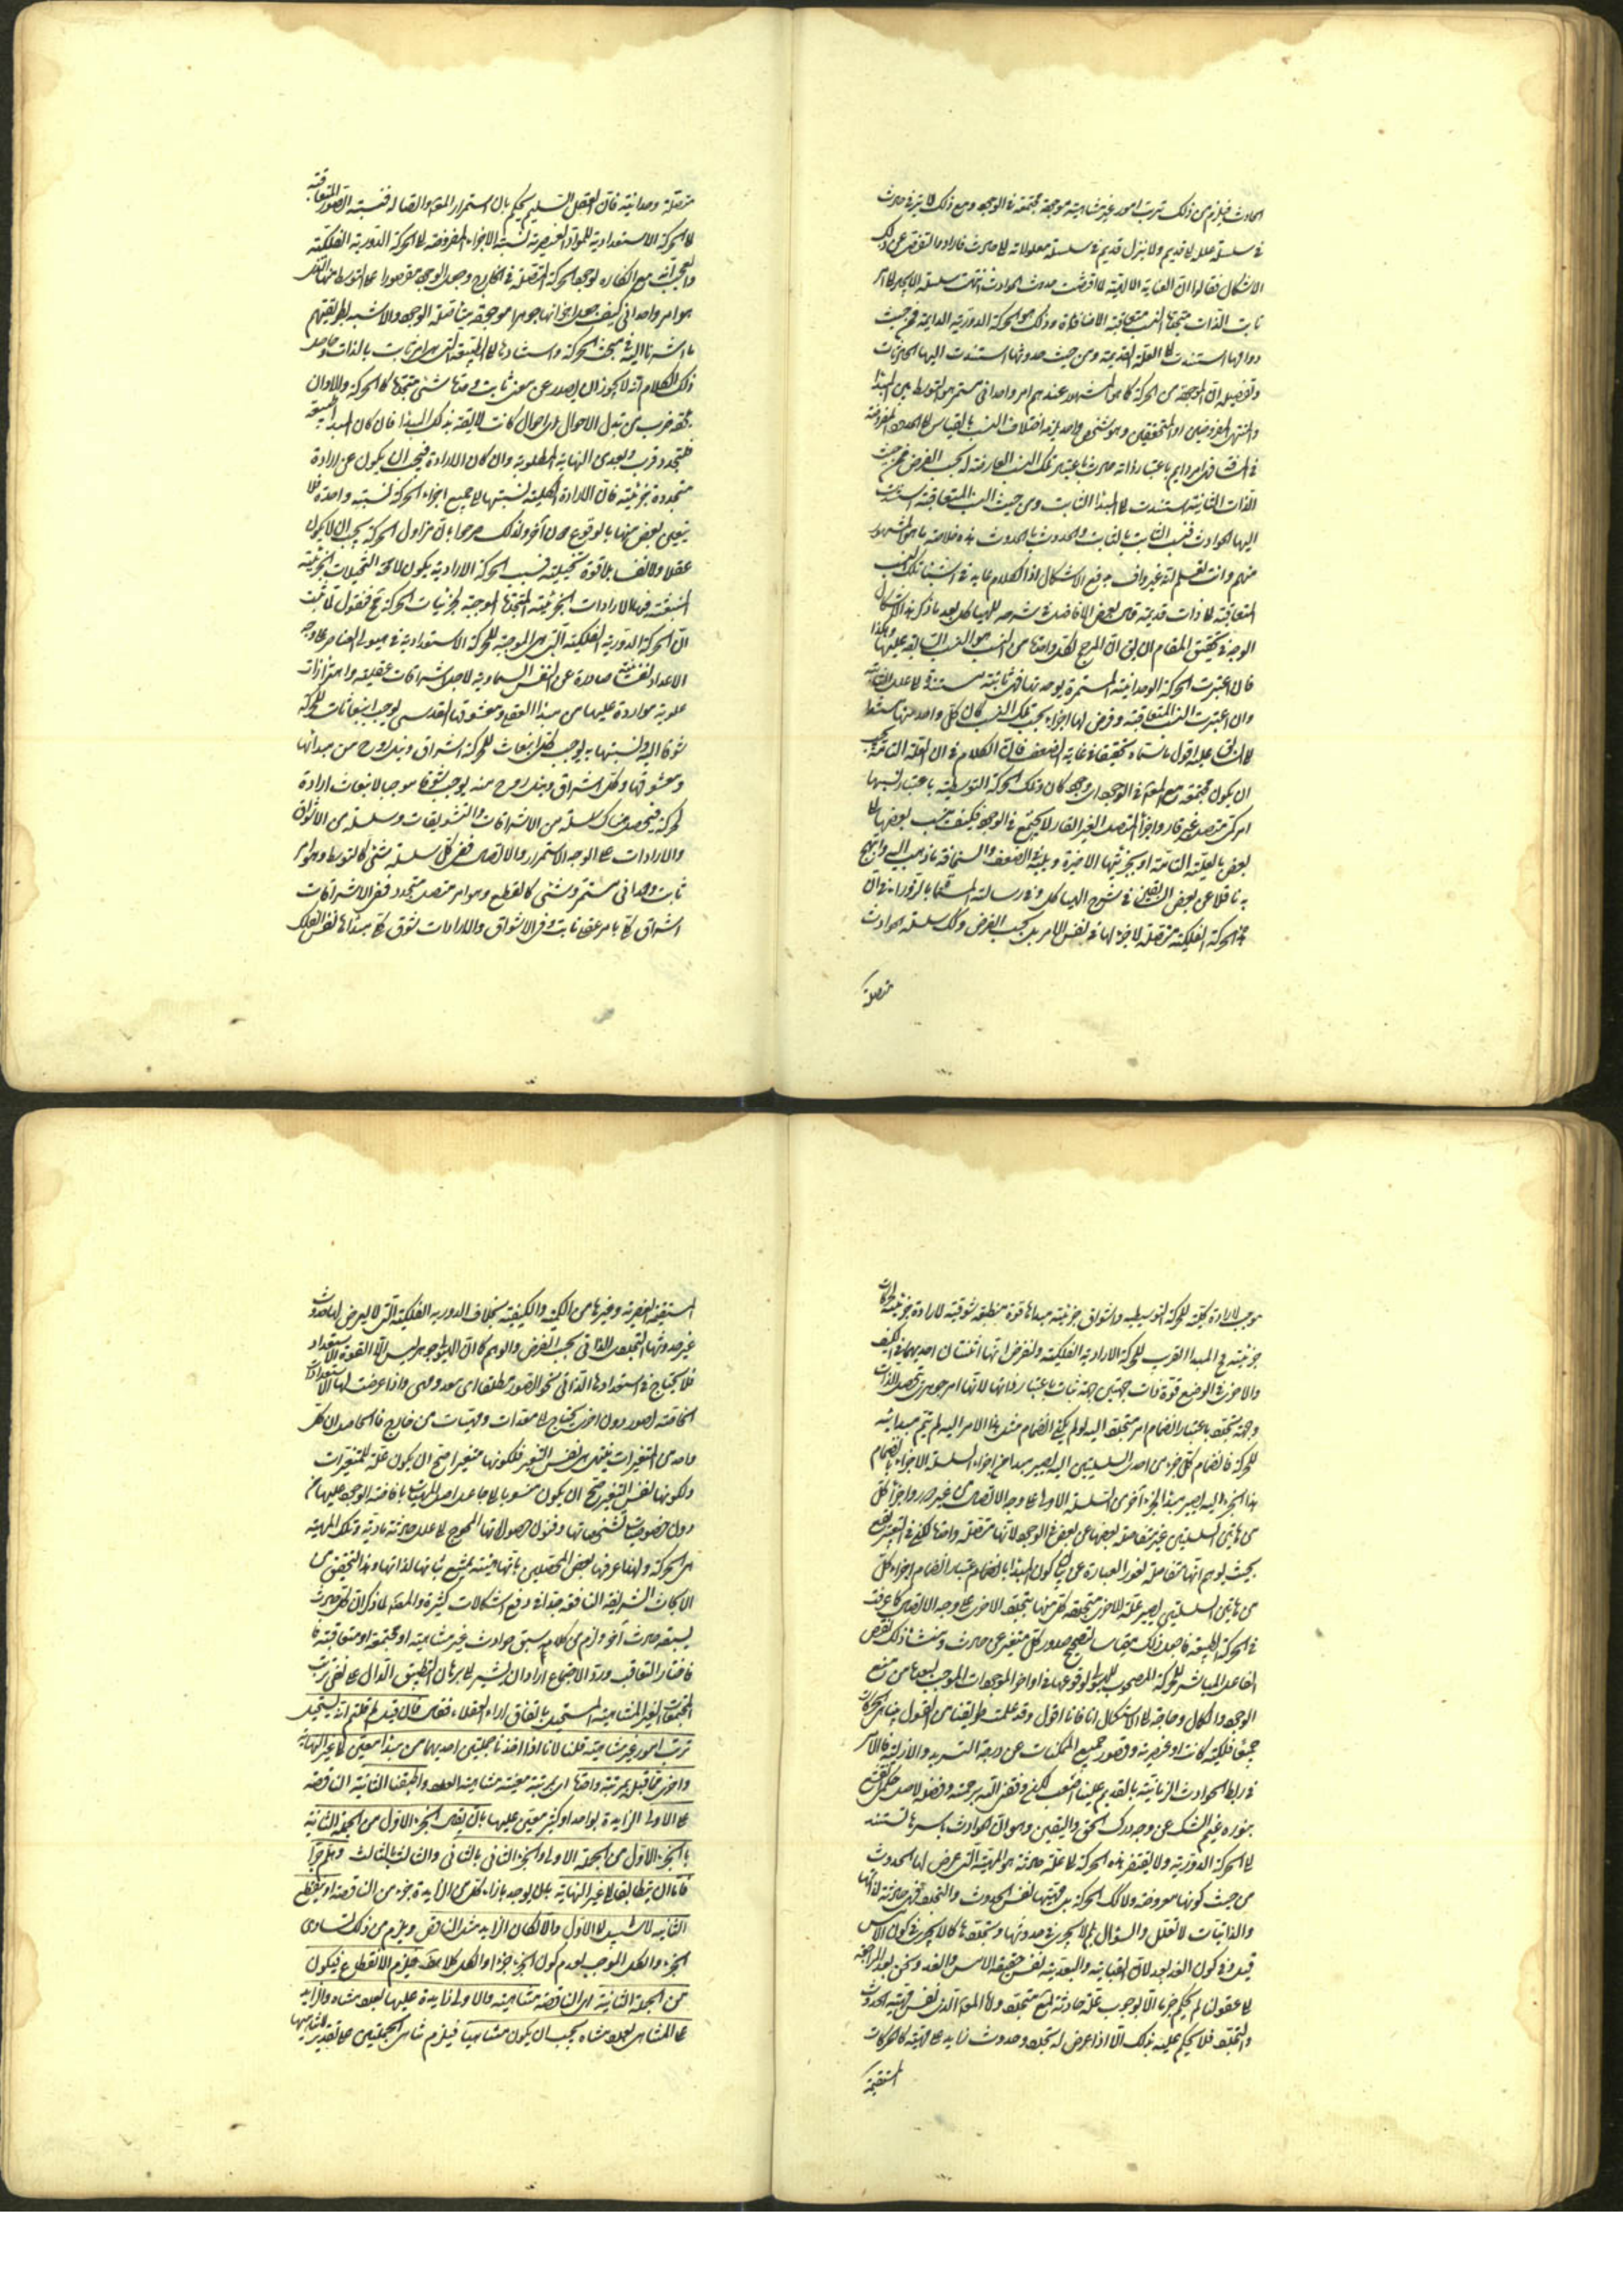 الحادث فيلزم من ذلك ترتب امور غير متناهية موجهة مجتمعة في الوجود ومع ذلك لا
في سلسلة علل لا قديم ولا ينزل قديم في سلسلة معلولاته لا حادث فارادوا التفصي عن ذلك
الاشكال فقالوا ان العناية الالهية لما اقتضت حدوث الحوادث انتهت سلسلة
ثابت الذات متجدد النسب متعاقبة الاضافات وذلك هو الحركة الدورية الدائمة فمن حيث
دوامها استندت الى العلة القديمة ومن حيث حدوثها استندت اليها الحادثات
وتفصيله ان الموجود من الحركة كما هو المشهور عندهم امر واحداني مستمر هو التوسط بين المبدأ
والمنتهى المفروضين او المتحققين وهو شخص واحد يلزمه اختلاف النسب بالقياس الى الحدود المفروضة
في المسافة فهو دايم باعتبار ذاته حادث باعتبار تلك النسب العارضة له بحسب الفرض فمن حيث
الذات الثابتة استندت الى المبدأ الثابت ومن حيث النسب المتعاقبة استندت
اليها الحوادث فنسب الثابت بالثابت والحدوث بالحدوث هذه خلاصة ما هو المشهور
منهم وانت تعلم انه غير واف بدفع الاشكال اذ الكلام عايد في استناد تلك النسب
المتعاقبة الى ذات قديمة قال بعض الافاضل في شرحه للهياكل بعد ما ذكر هذا الاشكال
الوجه في تحقيق المقام ان يقال ان المرجح لكل واحد من النسب هو النسب السابقة عليها وهكذا
فان اعتبرت الحركة الوحدانية المستمرة بوحدتها فهي ثابتة مستندة الى علل ثابتة
وان اعتبرت النسب المتعاقبة وفرض لها اجزاء بحسب تلك النسب كان كل واحد منها مستندا
الى السابق عليه اقول ما سماه تحقيقا في غاية الضعف فان الكلام في ان العلة التامة يجب
ان يكون مجتمعة مع المعلول في الوجود ان وجد كان وتلك الحركة التوسطية باعتبار نسبها
امر متصل غير قار واجزاء المتصل الغير القار لا يجتمع في الوجود فكيف ينسب بعضها الى
بعض بالعلية التامة او بجزئها الاخيرة ويليه في الضعف والسخافة ما ذهب اليه وابتهج
به ناقلا عن بعض السابقين في شرح الهياكل وفي رسالته المسماة بالزوراء من ان
الحركة الفلكية متصلة لا جزء لها في نفس الامر بل بحسب الفرض وتلك سلسلة الحوادث
متصلة
متصلة وحدانية فان العقل السليم يحكم بان استمرار المعد واتصاله فنسبة الصور المتعاقبة
الى الحركة الاستعدادية للمواد العنصرية نسبة الاجزاء المفروضة الى الحركة الدورية الفلكية
والعجب انه مع انكاره لوجود الحركة المتصلة في الخارج وجعل الوجود مقصورا على التوسط
هو امر واحداني كيف جعل اجزائها موجودة متأصلة الوجود والاشبه بطريقتهم
ما اشرنا اليه في مبحث الحركة واستنادها الى الطبيعة التي هي امر ثابت بالذات وحاصل
ذلك الكلام انه لا يجوز ان يصدر عن معنى ثابت وحده شيء متجدد كالحركة والا وان
يلحقه ضرب من تبدل الاحوال وان احوال كانت لاحقة بذلك المبدأ فان كان المبدأ طبيعة
فلتجدد قرب وبعد من النهاية المطلوبة وان كان الارادة فيجب ان يكون عن ارادة
متجددة جزئية فان الارادة الكلية نسبتها الى جميع اجزاء الحركة نسبة واحدة فلا
يتعين بعض منها بالوقوع دون آخر ولذلك صرحوا بان مزاول الحركة يجب ان لا يكون
عقلا ولا نفسا بلا قوة تخيلية فسبب الحركة الارادية يكون لا محالة التخيلات الجزئية
المنبعثة منها الارادات الجزئية المتجددة الموجبة لجزئيات الحركة ثم فنقول لما ثبت
ان الحركة الدورية الفلكية التي هي الموجبة للحركة الاستعدادية في هيولى العناصر على وجه
الاعداد نفسانية صادرة عن النفس السماوية لاجل اشراقات عقلية واهتزازات
علوية مواردة عليها من مبدأ العقل ومعشوقها القدسي يوجب انبعاثات للحركة
شوقا اليه وتشبها به يوجب كل انبعاث للحركة اشراق ونيل روح من مبدأها
ومعشوقها وكل اشراق ونيل روح منه يوجب شوقا موجبا لانبعاث ارادة
لحركة فيحصل هناك سلسلة من الاشراقات والتشويقات وسلسلة من الاشواق
والارادات على الوجه الاستمرار والاتصال ففي كل سلسلة شيء كالتوسط وهو امر
ثابت وحداني مستمر وشيء كالقطع وهو امر متصل متجدد ففي الاشراقات
اشراق كلي بامر عقلي ثابت وفي الاشواق والارادات شوق كلي مبدأه نفس الفلك
موجب لارادة كلية للحركة التوسطية واشواق جزئية مبدأها قوة منطبعة شوقية لارادة جزئية لحركات
جزئية ثم المبدأ القريب للحركة الارادية الفلكية ولنفرض انها اثنتان احديهما في الكيف
والاخرى في الوضع قوة ذات جهتين جهة ثبات باعتبار ذاتها لانها امر جوهري متحصل الذات
وجهة تجدد باعتبار انضمام امر متجدد اليه لو لم يكن انضمام مثل هذا الامر اليه لم يتم مبدائيته
للحركة فانضمام كل جزء من احدى السلسلتين اليه يصير مبدأ جزء من اجزاء السلسلة الاخرى وبانضمام
هذا الجزء اليه يصير مبدأ لجزء آخر من السلسلة الاولى على وجه الاتصال من غير دور واجزاء كل
من هاتين السلسلتين غير متفاصلة بعضها عن بعض في الوجود لانها متصلة واحدة لكن في التعبير يقع
بحيث يوهم انها متفاصلة لقصور العبارة عن بيان كون المبدأ بانضمام اعتبار انضمام اجزاء كل
من هاتين السلسلتين يصير علة للاخرى متجددة كل منها بتجدد الاخرى على وجه الاتصال كما عرفت
في الحركة الطبيعية فاجعل ذلك مقياسا لتصحيح صدور كل متغير عن حادث ومنشأ ذلك نقص
الفاعل المباشر للحركة المصحوب للهيولى لوقوعها في اواخر الموجودات الموجب لبعدها من منبع
الوجود والكمال وحاجته الى الاستكمال آنا فآنا اقول وقد علمت طريقتنا من القول بتبدل الحركات
جميعا فلكية كانت او عنصرية وقصور جميع الممكنات عن درجة السرمدية والازلية فالامر
في ربط الحوادث الزمانية بالقديم علينا اصعب لكن وفقني الله برحمته وفضله لاصل حكمي اقلع
بنوره غيم الشك عن وجه درك الحق واليقين وهو ان الحوادث باسرها تستند
الى الحركة الدورية ولا يفتقر هذه الحركة الى علة حادثة هو المهية التي عرض لها الحدوث
من حيث كونها معروضة ولا تلك الحركة بل مهيتها نفس الحدوث والتجدد فهي حادثة لذاتها
والذاتيات لا تعلل والسؤال بلم لا يجري في حدوثها وتجددها كما لا يجري في كون الامس
قبل وفي كون الغد بعد لان القبلية والبعدية نفس حقيقة الامس والغد ونحن بعد المراجعة
الى عقولنا لم يحكم جزما الا بوجوب علة حادثة لشيء متجدد ولا المعلول الذي نفس مهيته الحدوث
والتجدد فلا يحكم عليه بذلك الا اذا عرض له تجدد وحدوث زايد على مهيته كالحركات
المستقيمة
المستقيمة العنصرية وغيرها من الكمية والكيفية بخلاف الدورية الفلكية التي لا يعرض لها حدوث
غير حدوثها المتجدد الذاتي بحسب الفرض والوهم كما ان الهيولى جوهر ليس الا القوة والاستعداد
فلا يحتاج في استعدادها الذاتي نحو الصور مطلقا الى معد ومهيئ واذا عرضت لها الاستعدادات
الخاصة لصور دون اخرى يحتاج الى معدات ومهيئات من خارج فالحاصل ان كل
واحد من المتغيرات ينتهي الى نفس التغير فلكونها متغيرا صح ان يكون علة للمتغيرات
ولكونها نفس التغير صح ان يكون منسوبا الى جاعل اصل المهيات بافاضة الوجود عليها
دون خصوصيات تشخصاتها وفنون حصولاتها المحوج الى علل حادثة مادية وتلك المهية
هي الحركة ولهذا عرفها بعض المحصلين بانها هيئة يمتنع ثباتها لذاتها وهذا التحقيق من
الابحاث الشريفة النافعة جدا في دفع اشكالات كثيرة والمصنف لما ذكر ان كل حادث
يسبقه حادث آخر ولزم من كلامه سبق حوادث غير متناهية او مجتمعة او متعاقبة
فاختار التعاقب ورد الاجتماع اراد ان يشير الى برهان التطبيق الدال على نفي ترتب
المجتمعات الغير المتناهية المستحيل باتفاق آراء العقلاء فقال فان قيل لم قلتم انه يستحيل
ترتب امور غير متناهية قلنا لانا اذا اخذنا جملتين احديهما من مبدأ معين الى غير النهاية
واخرى مما قبله بمرتبة واحدة او بمرتبة معينة متناهية العدد واطبقنا الثانية الناقصة
على الاولى الزايدة بواحد او كثير معين عليها بان يقابل الجزء الاول من الجملة الثانية
بالجزء الاول من الجملة الاولى والجزء الثاني بالثاني والثالث بالثالث وهلم جرا
فاما ان يتطابقا الى غير النهاية بان يوجد بازاء كل من الزايدة جزء من الناقصة او ينقطع
الثانية لا سبيل الى الاول والا لكان الزايد مثل الناقص ويلزم من ذلك تساوي
الجزء والكل الموجب لعدم كون الجزء جزءا والكل كلا هف فيلزم الانقطاع فيكون
الجملة الثانية اي الناقصة متناهية والاولى زايدة عليها بعدد متناه والزايد
على المتناهي بعدد متناه يجب ان يكون متناهيا فيلزم تناهي الجملتين على تقدير لاتناهيهما